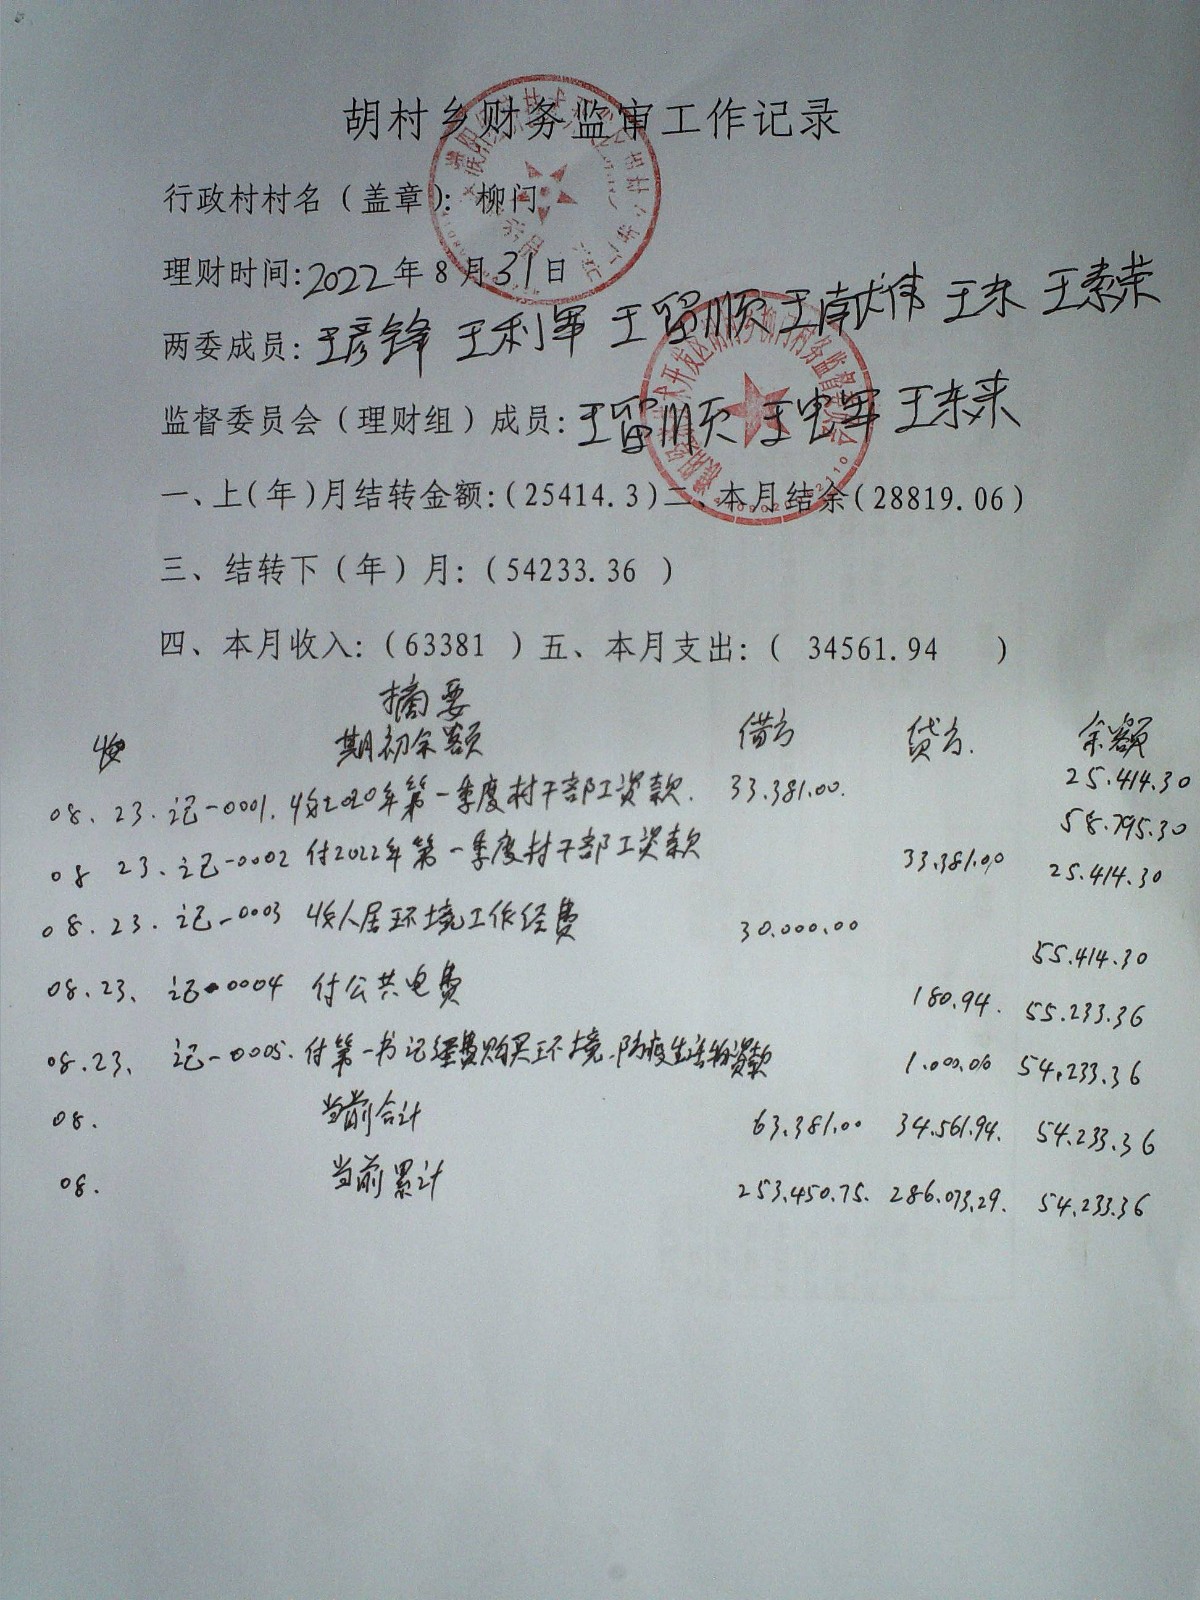 胡村乡财务监审工作记录
行政村村名（盖章）：柳门
理财时间:2022年8月31日
两委成员：王彦锋 王利军 王留顺 王南大伟 王东 王素荣
监督委员会（理财组）成员：王留顺 王忠军 王东来
一、上（年）月结转金额:（25414.3）二、本月结余（28819.06）
三、结转下（年）月：（54233.36 ）
四、本月收入：（63381 ）五、本月支出：（ 34561.94 ）
摘要
期初余额 借方 贷方. 余额
25.414.30
08. 23. 记-0001. 收2020年第一季度村干部工资款. 33.381.00. 58.795.30
08 23. 记-0002 付2022年第一季度村干部工资款 33.381.00 25.414.30
08. 23. 记-0003 收人居环境工作经费 30.000.00 55.414.30
08.23、 记-0004 付公共电费 180.94. 55.233.36
08.23、 记-0005. 付第一书记经费购买环境.防疫生活物资款 1.000.00 54.233.36
08. 当前合计 63.381.00 34.561.94. 54.233.36
08. 当前累计 253.450.75. 286.073.29. 54.233.36